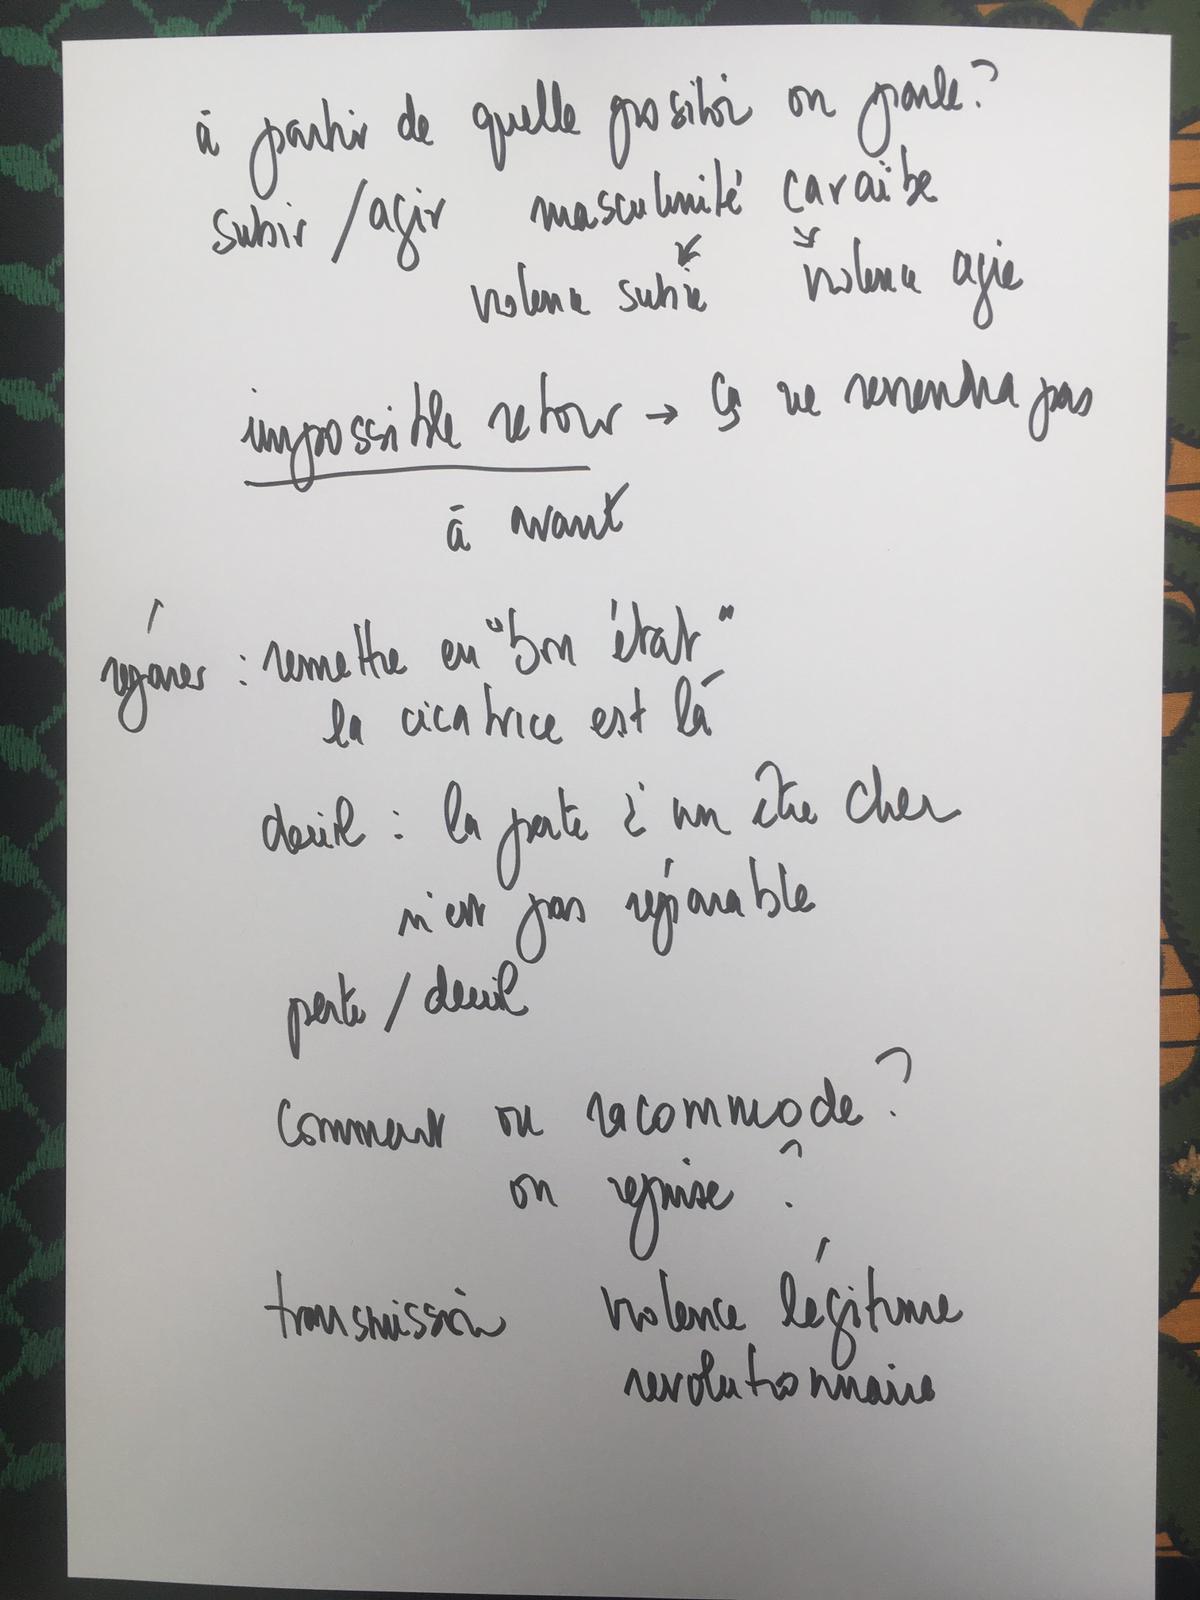 à partir de quelle position on parle?
subir / agir masculinité caraïbe
violence subie violence agie
impossible retour → ça ne reviendra pas
à avant
réparer : remettre en "bon état"
la cicatrice est là
deuil : la perte d'un être cher
n'est pas réparable
perte / deuil
comment on racommode?
on reprise ?
transmission violence légitime
revolutionnaire